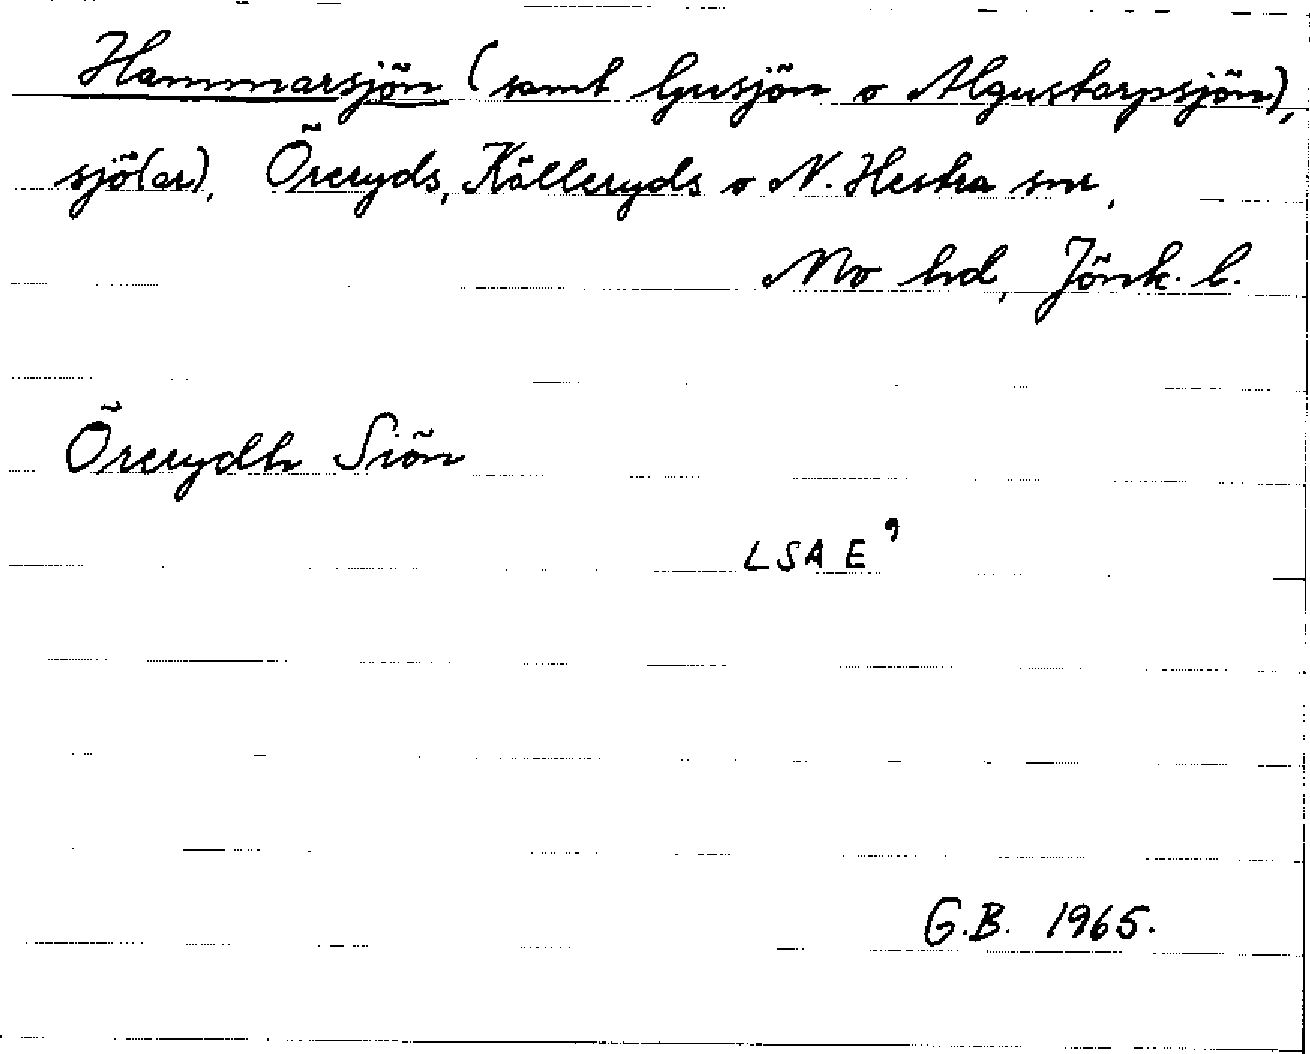 Hammarsjön (samt Ljusjön o Algustorpsjön),
sjö(ar), Öreryds, Källeryds o N. Hestra snr,
Mo hd, Jönk. l.
Örerydh Siön
LSA E9
G.B. 1965.